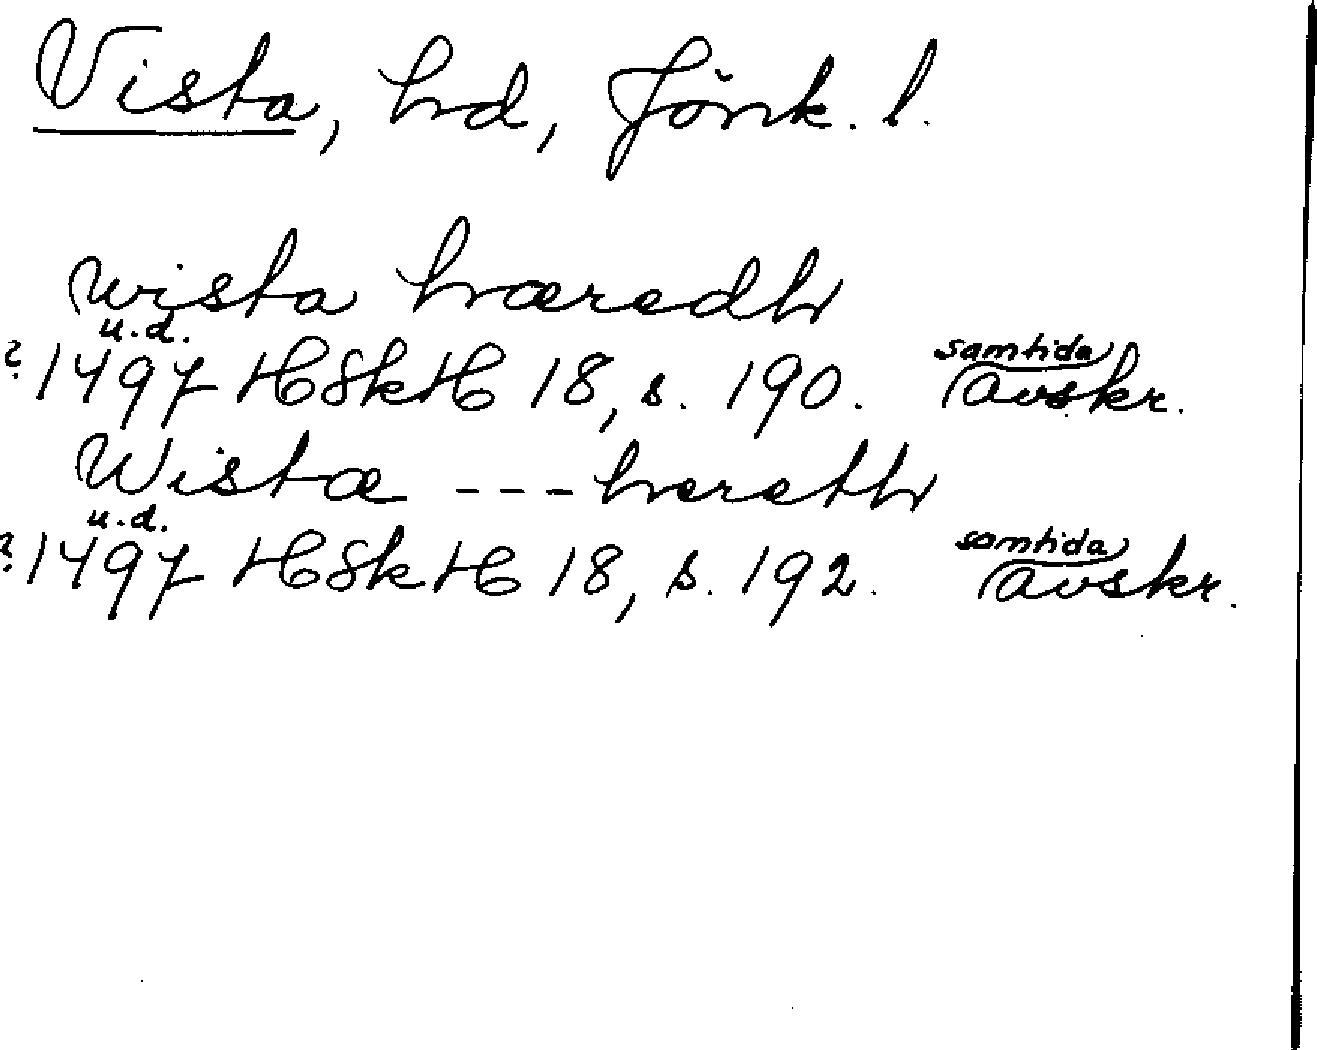 Vista, hd, Jönk. l.
wista hæredh
u.d.
?1497 HSkH 18, s. 190. samtida avskr.
Wistæ --- hereth
u.d.
?1497 HSkH 18, s. 192. samtida avskr.